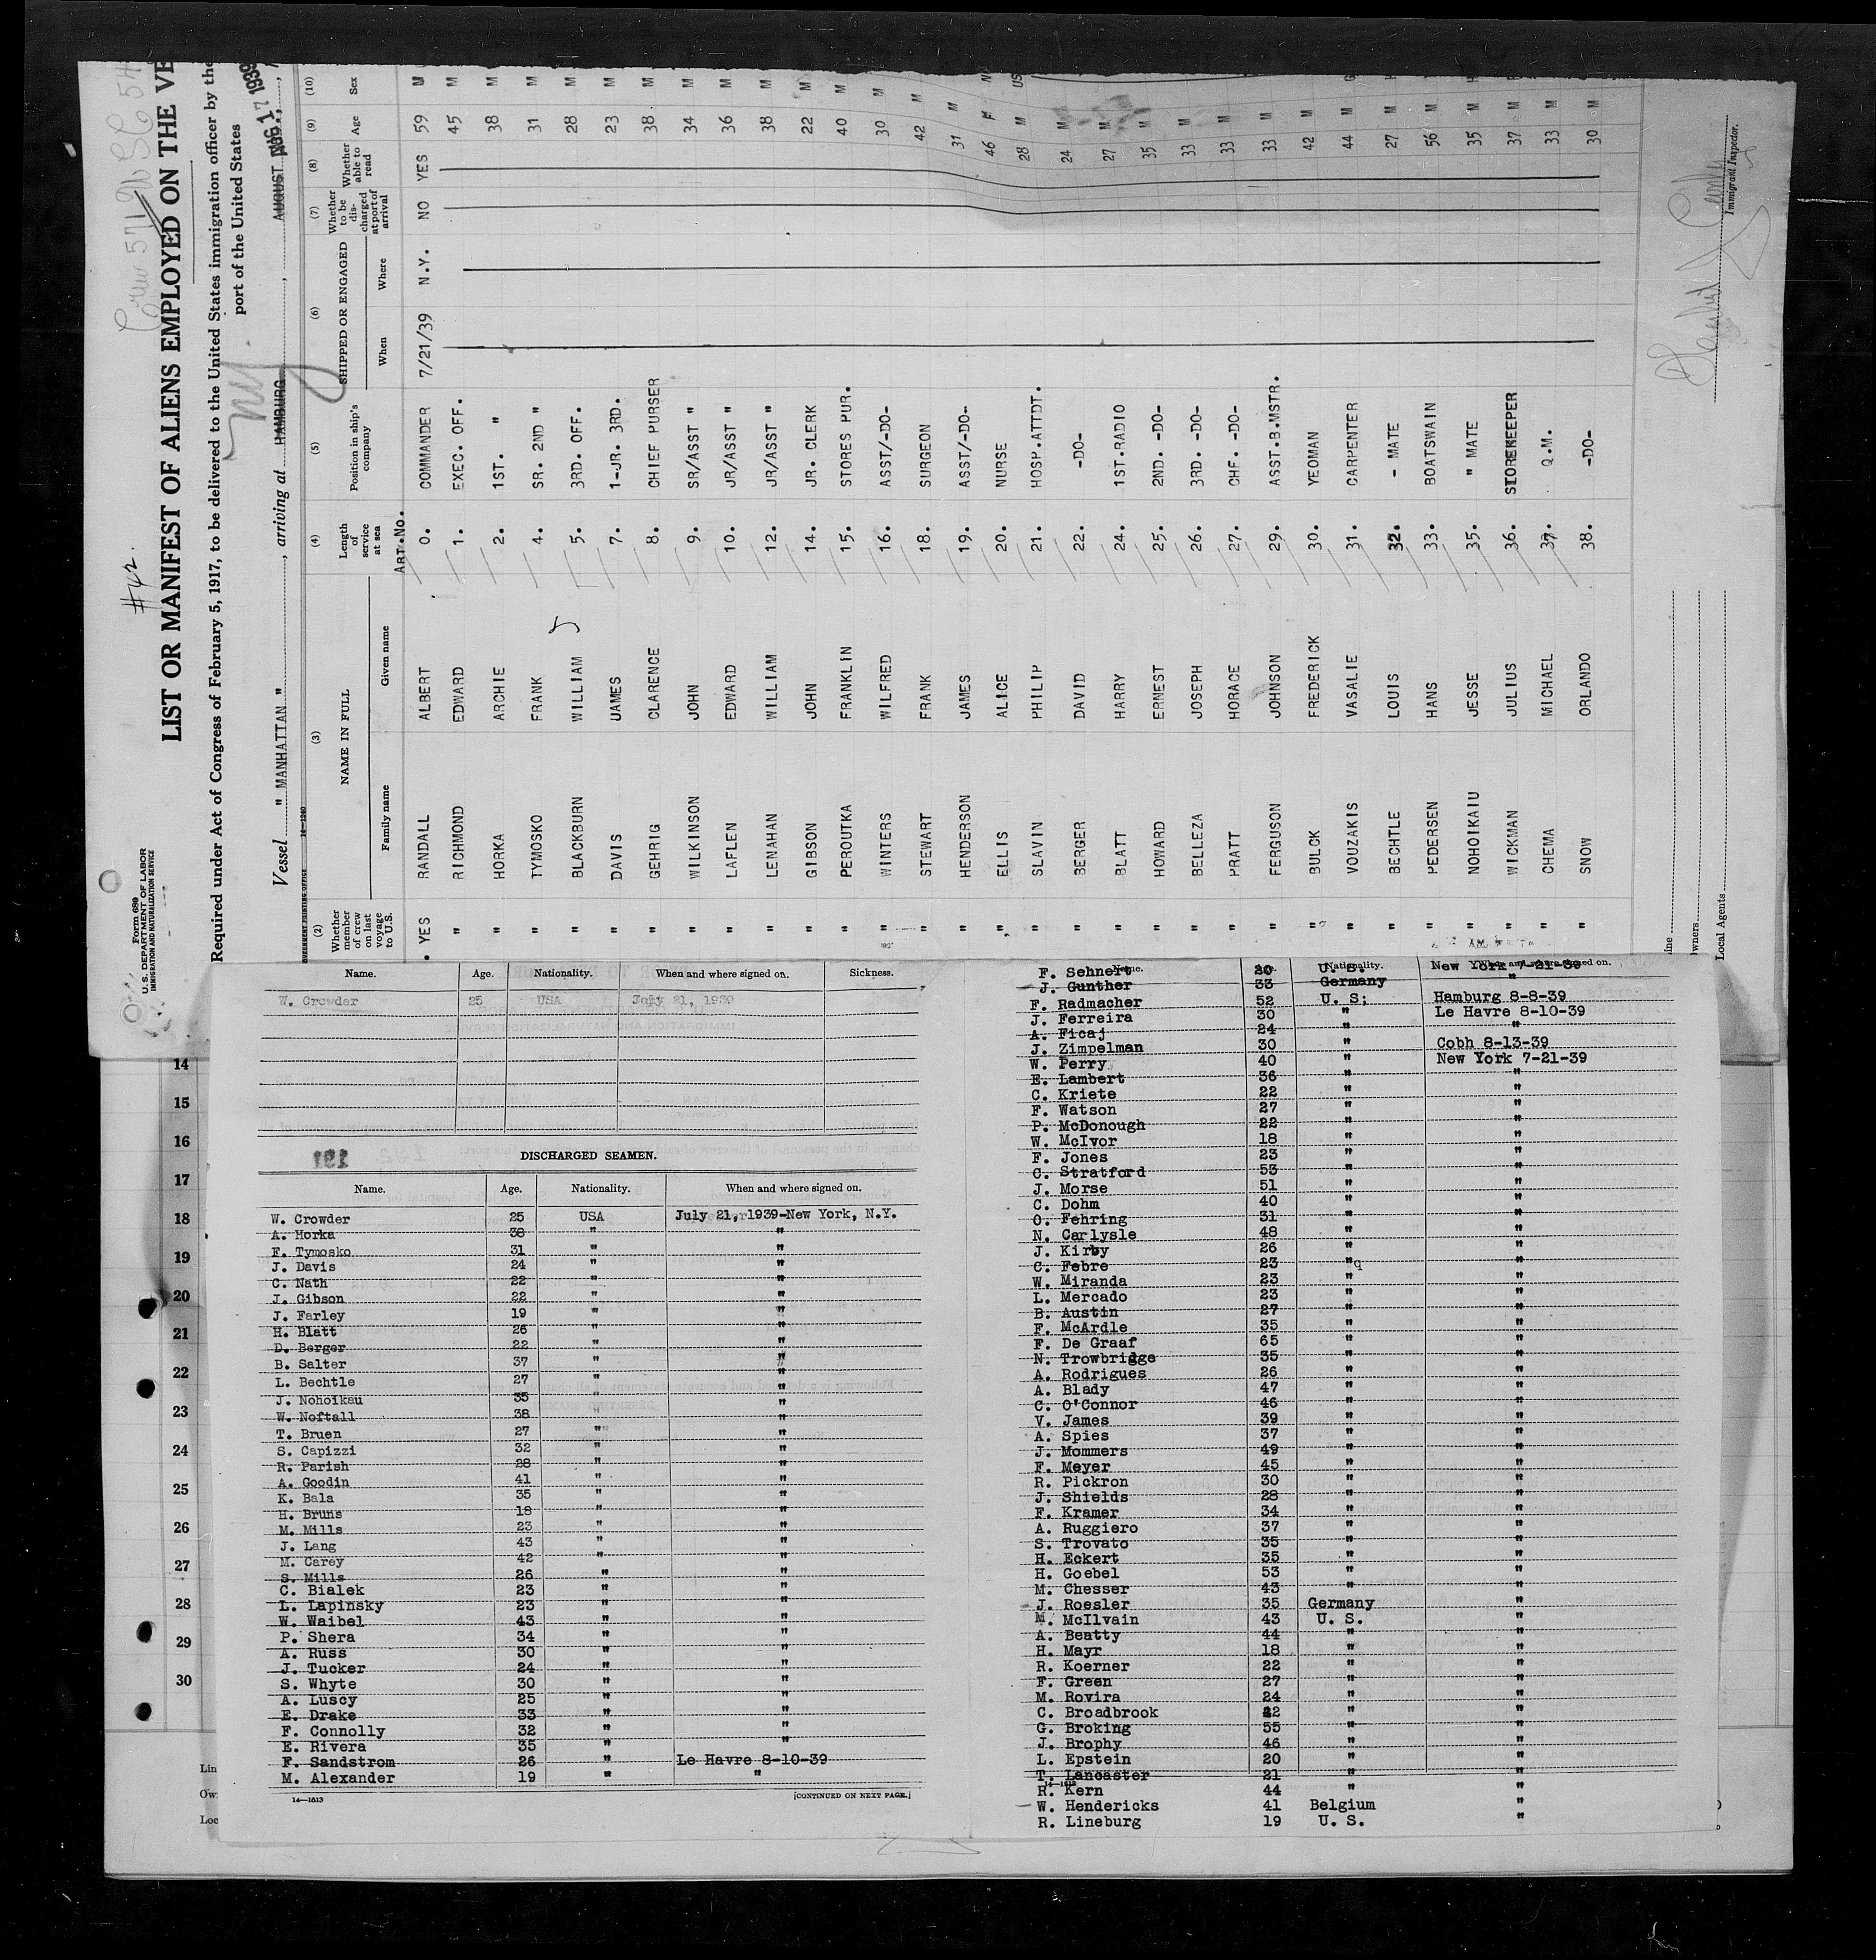 #42.
Form 680
U. S. DEPARTMENT OF LABOR
IMMIGRATION AND NATURALIZATION SERVICE
LIST OR MANIFEST OF ALIENS EMPLOYED ON THE VE
Required under Act of Congress of February 5, 1917, to be delivered to the United States immigration officer by the
port of the United States
Vessel " MANHATTAN " , arriving at HAMBURG , AUGUST AUG 17 1939
(2) (3) (4) (5) (6) (7) (8) (9) (10)
Whether member of crew on last voyage to U.S. NAME IN FULL Family name Given name Length of service at sea Position in ship's company SHIPPED OR ENGAGED When Where Whether to be discharged at port of arrival Whether able to read Age Sex
ART.No.
YES RANDALL ALBERT 0. COMMANDER 7/21/39 N.Y. NO YES 59
" RICHMOND EDWARD 1. EXEC. OFF. 45 M
" HORKA ARCHIE 2. 1ST. " 38 M
" TYMOSKO FRANK 4. SR. 2ND " 31 M
" BLACKBURN WILLIAM 5. 3RD. OFF. 28 M
" DAVIS JAMES 7. 1-JR. 3RD. 23 M
" GEHRIG CLARENCE 8. CHIEF PURSER 38 M
" WILKINSON JOHN 9. SR/ASST " 34 M
" LAFLEN EDWARD 10. JR/ASST " 36 M
" LENAHAN WILLIAM 12. JR/ASST " 38 M
" GIBSON JOHN 14. JR. CLERK 22 M
" PEROUTKA FRANKLIN 15. STORES PUR. 40 M
" WINTERS WILFRED 16. ASST/-DO- 30 M
" STEWART FRANK 18. SURGEON 42 M
" HENDERSON JAMES 19. ASST/-DO- 31 M
" ELLIS ALICE 20. NURSE 46 F
" SLAVIN PHILIP 21. HOSP.ATTDT. 28 M US
" BERGER DAVID 22. -DO- 24 M
" BLATT HARRY 24. 1ST.RADIO 27 M
" HOWARD ERNEST 25. 2ND. -DO- 35 M
" BELLEZA JOSEPH 26. 3RD. -DO- 33 M
" PRATT HORACE 27. CHF. -DO- 33 M
" FERGUSON JOHNSON 29. ASST.B.MSTR. 33 M
" BULCK FREDERICK 30. YEOMAN 42 M
" VOUZAKIS VASALIE 31. CARPENTER 44 M
" BECHTLE LOUIS 32. - MATE 27 M
" PEDERSEN HANS 33. BOATSWAIN 56 M
" NOHOIKAIU JESSE 35. " MATE 35 M
" WICKMAN JULIUS 36. STOREKEEPER 37 M
" CHEMA MICHAEL 37. Q.M. 33 M
" SNOW ORLANDO 38. -DO- 30 M
Immigrant Inspector.
Local Agents
14
15
16
17
18
19
20
21
22
23
24
25
26
27
28
29
30
Name. Age. Nationality. When and where signed on. Sickness.
W. Crowder 25 USA July 21, 1939
191
DISCHARGED SEAMEN.
Name. Age. Nationality. When and where signed on.
W. Crowder 25 USA July 21, 1939-New York, N.Y.
A. Horka 38 " "
F. Tymosko 31 " "
J. Davis 24 " "
C. Nath 22 " "
J. Gibson 22 " "
J. Farley 19 " "
H. Blatt 26 " "
D. Berger 22 " "
B. Salter 37 " "
L. Bechtle 27 " "
J. Nohoikau 35 " "
W. Noftall 38 " "
T. Bruen 27 " "
S. Capizzi 32 " "
R. Parish 28 " "
A. Goodin 41 " "
K. Bala 35 " "
H. Bruns 18 " "
M. Mills 23 " "
J. Lang 43 " "
M. Carey 42 " "
S. Mills 26 " "
C. Bialek 23 " "
L. Lapinsky 23 " "
W. Waibel 43 " "
P. Shera 34 " "
A. Russ 30 " "
J. Tucker 24 " "
S. Whyte 30 " "
A. Luscy 25 " "
E. Drake 33 " "
F. Connolly 32 " "
E. Rivera 35 " "
F. Sandstrom 26 " Le Havre 8-10-39
M. Alexander 19 " "
14—1513 [CONTINUED ON NEXT PAGE.]
Name. Nationality. When and where signed on.
F. Sehnert 30 U. S. New York 7-21-39
J. Gunther 33 Germany "
F. Radmacher 52 U. S; Hamburg 8-8-39
J. Ferreira 30 " Le Havre 8-10-39
A. Ficaj 24 " "
J. Zimpelman 30 " Cobh 8-13-39
W. Perry 40 " New York 7-21-39
E. Lambert 36 " "
C. Kriete 22 " "
F. Watson 27 " "
P. McDonough 22 " "
W. McIvor 18 " "
F. Jones 23 " "
C. Stratford 53 " "
J. Morse 51 " "
C. Dohm 40 " "
O. Fehring 31 " "
N. Carlysle 48 " "
J. Kirby 26 " "
C. Febre 23 "q "
W. Miranda 23 " "
L. Mercado 23 " "
B. Austin 27 " "
F. McArdle 35 " "
F. De Graaf 65 " "
N. Trowbridge 35 " "
A. Rodrigues 26 " "
A. Blady 47 " "
C. O'Connor 46 " "
V. James 39 " "
A. Spies 37 " "
J. Mommers 49 " "
F. Meyer 45 " "
R. Pickron 30 " "
J. Shields 28 " "
F. Kramer 34 " "
A. Ruggiero 37 " "
S. Trovato 35 " "
H. Eckert 35 " "
H. Goebel 53 " "
M. Chesser 43 " "
J. Roesler 35 Germany "
M. McIlvain 43 U. S. "
A. Beatty 44 " "
H. Mayr 18 " "
R. Koerner 22 " "
F. Green 27 " "
M. Rovira 24 " "
C. Broadbrook 22 " "
G. Broking 55 " "
J. Brophy 46 " "
L. Epstein 20 " "
T. Lancaster 21 " "
R. Kern 44 " "
W. Hendericks 41 Belgium "
R. Lineburg 19 U. S.